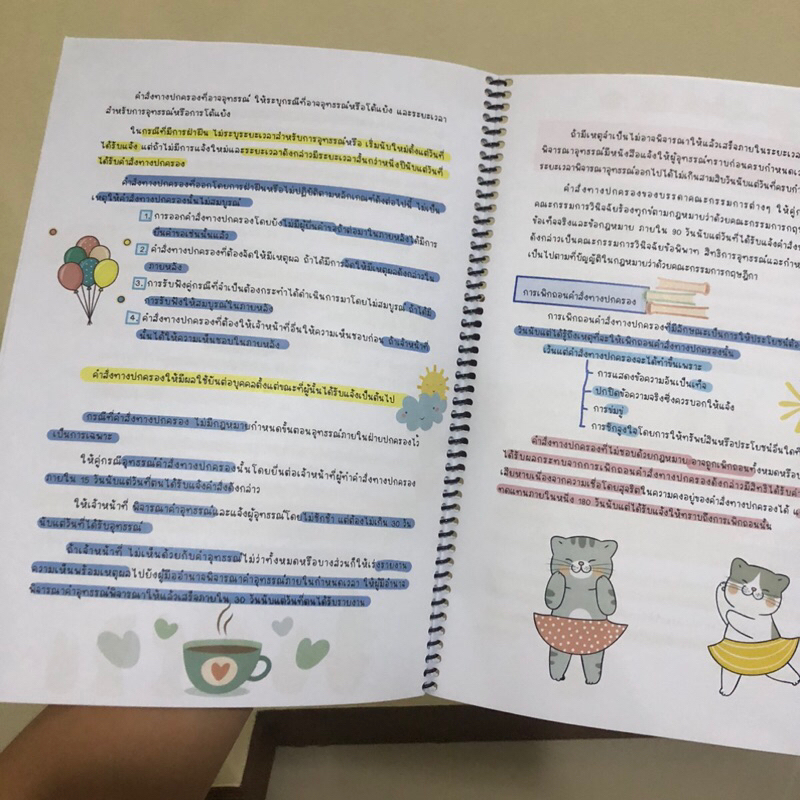 คำสั่งทางปกครองที่อาจอุทธรณ์ ให้ระบุกรณีที่อาจอุทธรณ์หรือโต้แย้ง และระยะเวลา
สำหรับการอุทธรณ์หรือการโต้แย้ง
ในกรณีที่มีการฝ่าฝืน ไม่ระบุระยะเวลาสำหรับการอุทธรณ์หรือ เริ่มนับใหม่ตั้งแต่วันที่
ได้รับแจ้ง แต่ถ้าไม่มีการแจ้งใหม่และระยะเวลาดังกล่าวมีระยะเวลาสั้นกว่าหนึ่งปีนับแต่วันที่
ได้รับคำสั่งทางปกครอง
คำสั่งทางปกครองที่ออกโดยการฝ่าฝืนหรือไม่ปฏิบัติตามหลักเกณฑ์ดังต่อไปนี้ ไม่เป็น
เหตุให้คำสั่งทางปกครองนั้นไม่สมบูรณ์
1. การออกคำสั่งทางปกครองโดยยังไม่มีผู้ยื่นคำขอถ้าต่อมาในภายหลังได้มีการ
ยื่นคำขอเช่นนั้นแล้ว
2. คำสั่งทางปกครองที่ต้องจัดให้มีเหตุผล ถ้าได้มีการจัดให้มีเหตุผลดังกล่าวใน
ภายหลัง
3. การรับฟังคู่กรณีที่จำเป็นต้องกระทำได้ดำเนินการมาโดยไม่สมบูรณ์ ถ้าได้มี
การรับฟังให้สมบูรณ์ในภายหลัง
4. คำสั่งทางปกครองที่ต้องให้เจ้าหน้าที่อื่นให้ความเห็นชอบก่อน ถ้าเจ้าหน้าที่
นั้นได้ให้ความเห็นชอบในภายหลัง
คำสั่งทางปกครองให้มีผลใช้ยันต่อบุคคลตั้งแต่ขณะที่ผู้นั้นได้รับแจ้งเป็นต้นไป
กรณีที่คำสั่งทางปกครอง ไม่มีกฎหมายกำหนดขั้นตอนอุทธรณ์ภายในฝ่ายปกครองไว้
เป็นการเฉพาะ
ให้คู่กรณีอุทธรณ์คำสั่งทางปกครองนั้นโดยยื่นต่อเจ้าหน้าที่ผู้ทำคำสั่งทางปกครอง
ภายใน 15 วันนับแต่วันที่ตนได้รับแจ้งคำสั่งดังกล่าว
ให้เจ้าหน้าที่ พิจารณาคำอุทธรณ์และแจ้งผู้อุทธรณ์โดยไม่ชักช้า แต่ต้องไม่เกิน 30 วัน
นับแต่วันที่ได้รับอุทธรณ์
ถ้าเจ้าหน้าที่ ไม่เห็นด้วยกับคำอุทธรณ์ไม่ว่าทั้งหมดหรือบางส่วนก็ให้เร่งรายงาน
ความเห็นพร้อมเหตุผลไปยังผู้มีอำนาจพิจารณาคำอุทธรณ์ภายในกำหนดเวลา ให้ผู้มีอำนาจ
พิจารณาคำอุทธรณ์พิจารณาให้แล้วเสร็จภายใน 30 วันนับแต่วันที่ตนได้รับรายงาน
ถ้ามีเหตุจำเป็นไม่อาจพิจารณาให้แล้วเสร็จภายในระยะเวลา
พิจารณาอุทธรณ์มีหนังสือแจ้งให้ผู้อุทธรณ์ทราบก่อนครบกำหนดเว
ระยะเวลาพิจารณาอุทธรณ์ออกไปได้ไม่เกินสามสิบวันนับแต่วันที่ครบกำ
คำสั่งทางปกครองของบรรดาคณะกรรมการต่างๆ ให้คู่ก
คณะกรรมการวินิจฉัยร้องทุกข์ตามกฎหมายว่าด้วยคณะกรรมการกฤษ
ข้อเท็จจริงและข้อกฎหมาย ภายใน 90 วันนับแต่วันที่ได้รับแจ้งคำสั่ง
ดังกล่าวเป็นคณะกรรมการวินิจฉัยข้อพิพาท สิทธิการอุทธรณ์และกำห
เป็นไปตามที่บัญญัติในกฎหมายว่าด้วยคณะกรรมการกฤษฎีกา
การเพิกถอนคำสั่งทางปกครอง
การเพิกถอนคำสั่งทางปกครองที่มีลักษณะเป็นการให้ประโยชน์ต้อ
วันนับแต่ได้รู้ถึงเหตุที่จะให้เพิกถอนคำสั่งทางปกครองนั้น
เว้นแต่คำสั่งทางปกครองจะได้ทำขึ้นเพราะ
การแสดงข้อความอันเป็นเท็จ
ปกปิดข้อความจริงซึ่งควรบอกให้แจ้ง
การข่มขู่
การชักจูงใจโดยการให้ทรัพย์สินหรือประโยชน์อื่นใดที่
คำสั่งทางปกครองที่ไม่ชอบด้วยกฎหมาย อาจถูกเพิกถอนทั้งหมดหรือบ
ได้รับผลกระทบจากการเพิกถอนคำสั่งทางปกครองดังกล่าวมีสิทธิได้รับค่า
เสียหายเนื่องจากความเชื่อโดยสุจริตในความคงอยู่ของคำสั่งทางปกครองได้
ทดแทนภายในหนึ่ง 180 วันนับแต่ได้รับแจ้งให้ทราบถึงการเพิกถอนนั้น